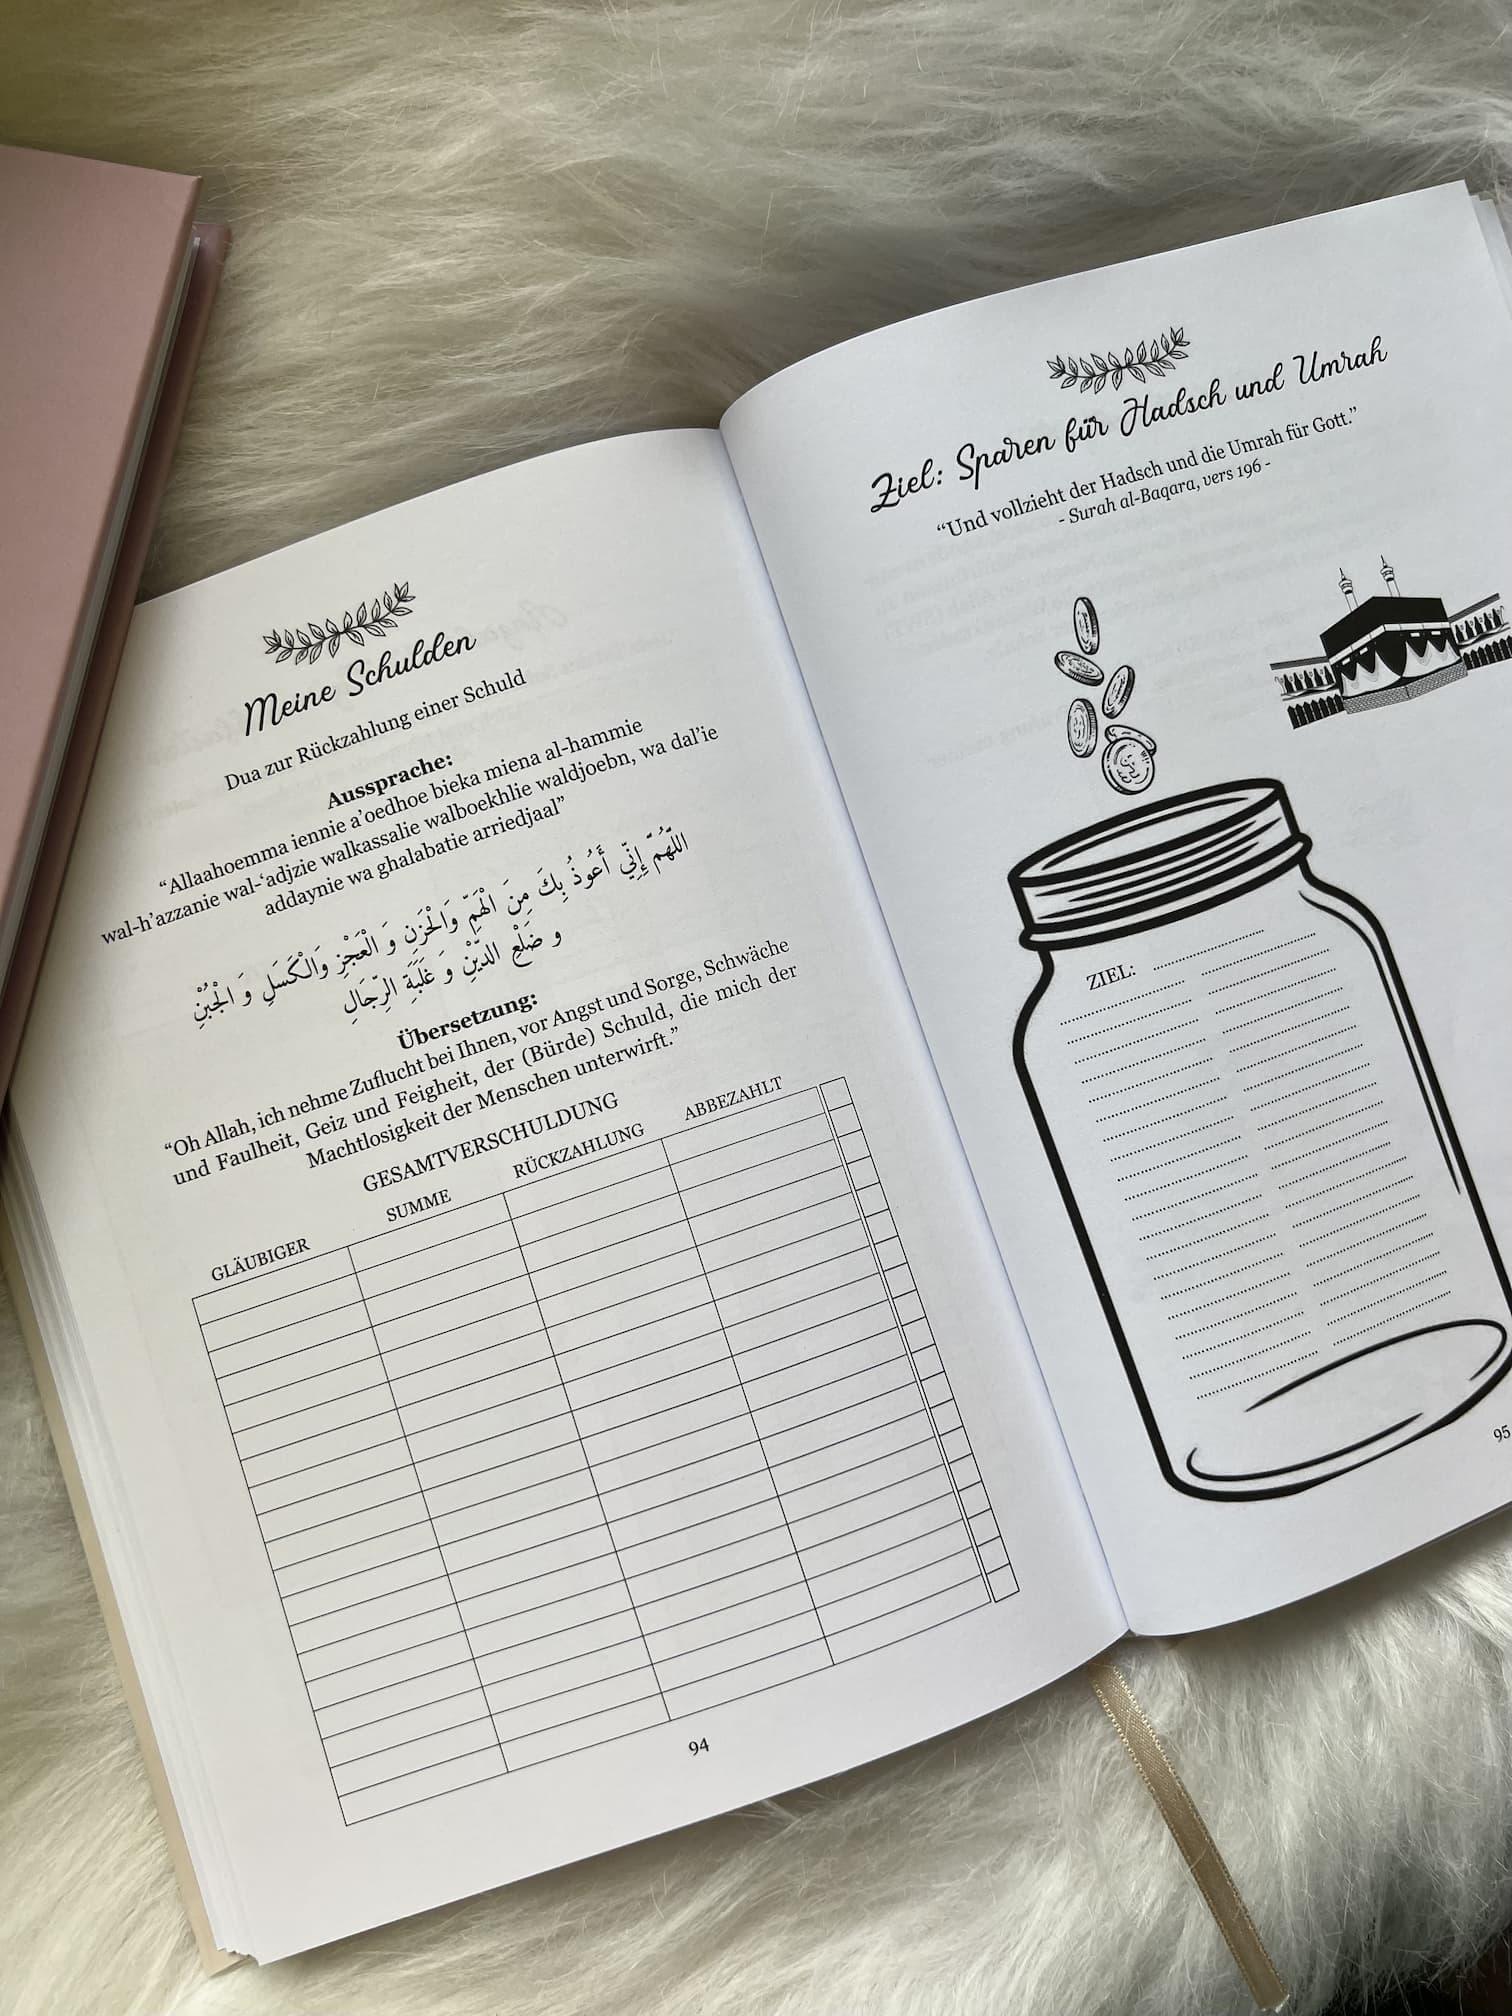 Meine Schulden
Dua zur Rückzahlung einer Schuld
Aussprache:
“Allaahoemma iennie a’oedhoe bieka miena al-hammie
wal-h’azzanie wal-‘adjzie walkassalie walboekhlie waldjoebn, wa dal’ie
addaynie wa ghalabatie arriedjaal”
اللَّهُمَّ إِنِّي أَعُوذُ بِكَ مِنَ الْهَمِّ وَالْحَزَنِ وَ الْعَجْزِ وَالْكَسَلِ وَ الْجُبْنِ
و ضَلْعِ الدَّيْنِ وَ غَلَبَةِ الرِّجَالِ
Übersetzung:
“Oh Allah, ich nehme Zuflucht bei Ihnen, vor Angst und Sorge, Schwäche
und Faulheit, Geiz und Feigheit, der (Bürde) Schuld, die mich der
Machtlosigkeit der Menschen unterwirft.”
GESAMTVERSCHULDUNG
GLÄUBIGER SUMME RÜCKZAHLUNG ABBEZAHLT
94
Ziel: Sparen für Hadsch und Umrah
“Und vollzieht der Hadsch und die Umrah für Gott.”
- Surah al-Baqara, vers 196 -
ZIEL:
95